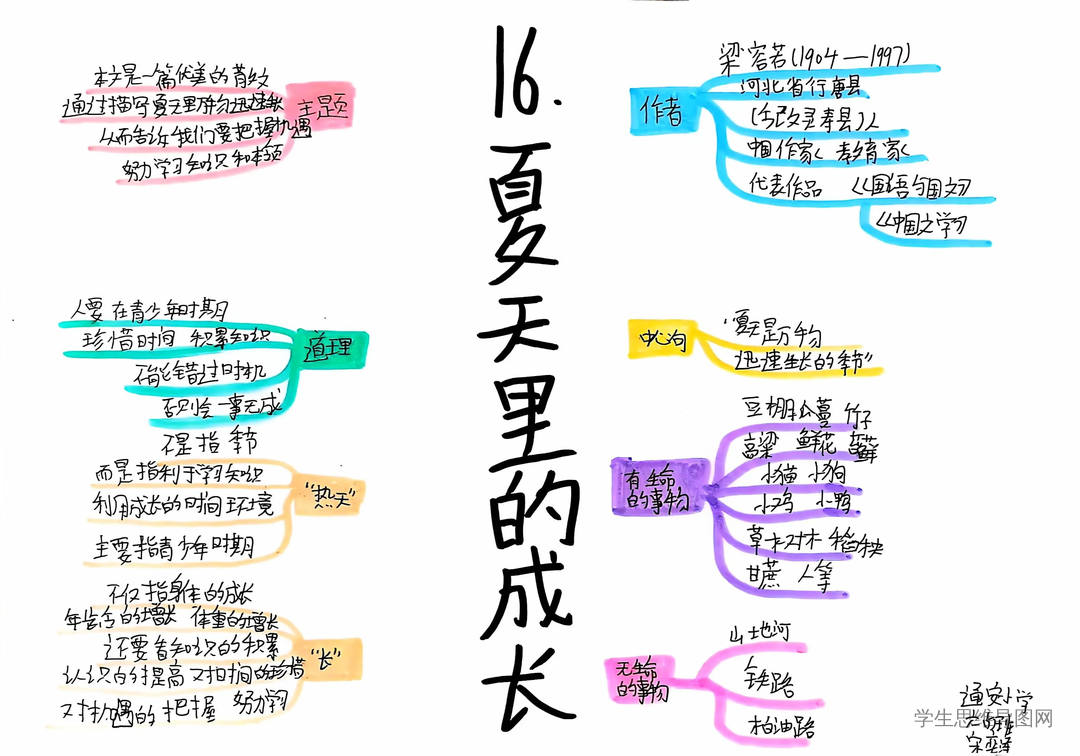 16.夏天里的成长
主题
本文是一篇优美的散文
通过描写夏天里万物迅速生长
从而告诉我们要把握机遇
努力学习知识和本领
道理
人要在青少年时期
珍惜时间 积累知识
不能错过时机
否则会一事无成
"热天"
不是指季节
而是指利于学习知识
利用成长的时间环境
主要指青少年时期
"长"
不仅指身体的成长
年龄的增长 体重的增长
还要看知识的积累
认识的提高 对时间的珍惜
对机遇的把握 努力学习
作者
梁容若(1904—1997)
河北省行唐县
(今改灵寿县)人
中国作家 教育家
代表作品 《国语与国文》
《中国文学》
中心句
"夏天是万物
迅速生长的季节"
有生命的事物
豆棚瓜蔓 竹子
高粱 鲜花 苔藓
小猫 小狗
小鸡 小鸭
草木 树木 稻秧
甘蔗 人等
无生命的事物
山地河
铁路
柏油路
通安小学
学生思维导图网